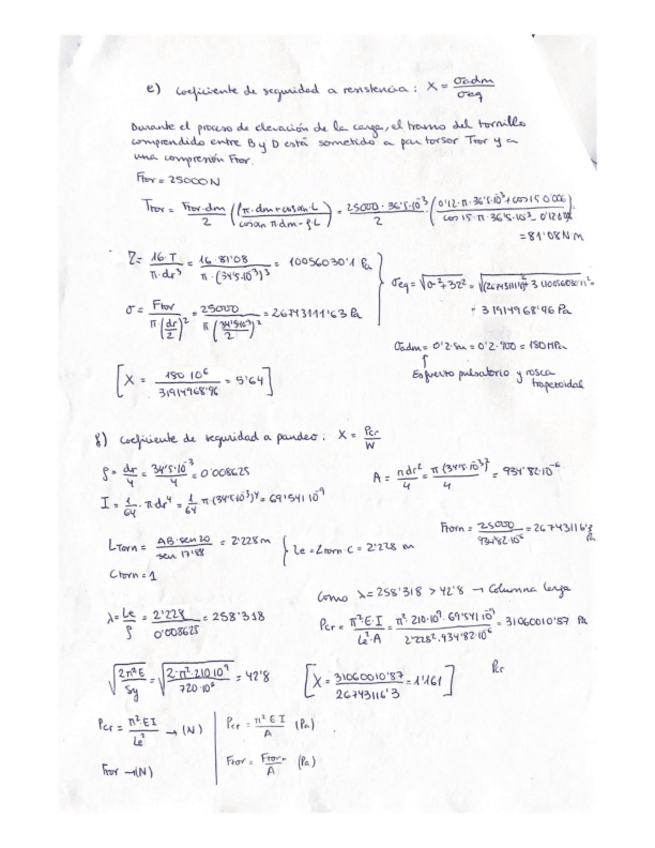 e) Coeficiente de seguridad a resistencia: X = σadm / σeq
Durante el proceso de elevación de la carga, el tramo del tornillo
comprendido entre B y D está sometido a par torsor Ttor y a
una compresión Ftor.
Ftor = 25000 N
Ttor = Ftor·dm / 2 (f·π·dm + cosαn·L / cosαn π dm - f L) = 25000·36'5·10⁻³ / 2 · (0'12·π·36'5·10⁻³ + cos15 0'006 / cos15·π·36'5·10⁻³ - 0'12·0'006)
= 81'08 N m
Z = 16·T / π·dr³ = 16·81'08 / π·(34'5·10⁻³)³ = 10056030'1 Pa
σeq = √σ²+3Z² = √(26743111'6)²+3(10056030'1)² =
= 31914968'96 Pa
σ = Ftor / π(dr/2)² = 25000 / π(34'5·10⁻³/2)² = 26743111'63 Pa
σadm = 0'2·Su = 0'2·900 = 180 MPa
↑
Esfuerzo pulsatorio y rosca
trapezoidal
[X = 180·10⁶ / 31914968'96 = 5'64]
f) Coeficiente de seguridad a pandeo: X = Pcr / W
ρ = dr/4 = 34'5·10⁻³ / 4 = 0'008625
A = πdr²/4 = π(34'5·10⁻³)² / 4 = 934'82·10⁻⁶
I = 1/64 · πdr⁴ = 1/64 π·(34'5·10⁻³)⁴ = 69'541·10⁻⁹
Ftorn = 25000 / 934'82·10⁻⁶ = 26743116'3 Pa
LTorn = AB·sen20 / sen 17'88 = 2'228 m
Le = Ltorn·C = 2'228 m
Ctorn = 1
Como λ = 258'318 > 42'8 → Columna larga
λ = Le/ρ = 2'228 / 0'008625 = 258'318
Pcr = π²·E·I / Le²·A = π²·210·10⁹·69'541·10⁻⁹ / 2'228²·934'82·10⁻⁶ = 31060010'87 Pa
√2π²E / Sy = √2·π²·210·10⁹ / 720·10⁶ = 42'8
[X = 31060010'87 / 26743116'3 = 1'161]
Pcr
Pcr = π²·EI / Le² → (N)
Pcr = π² E I / A (Pa)
Ftor → (N)
Ftor = Ftor / A (Pa)